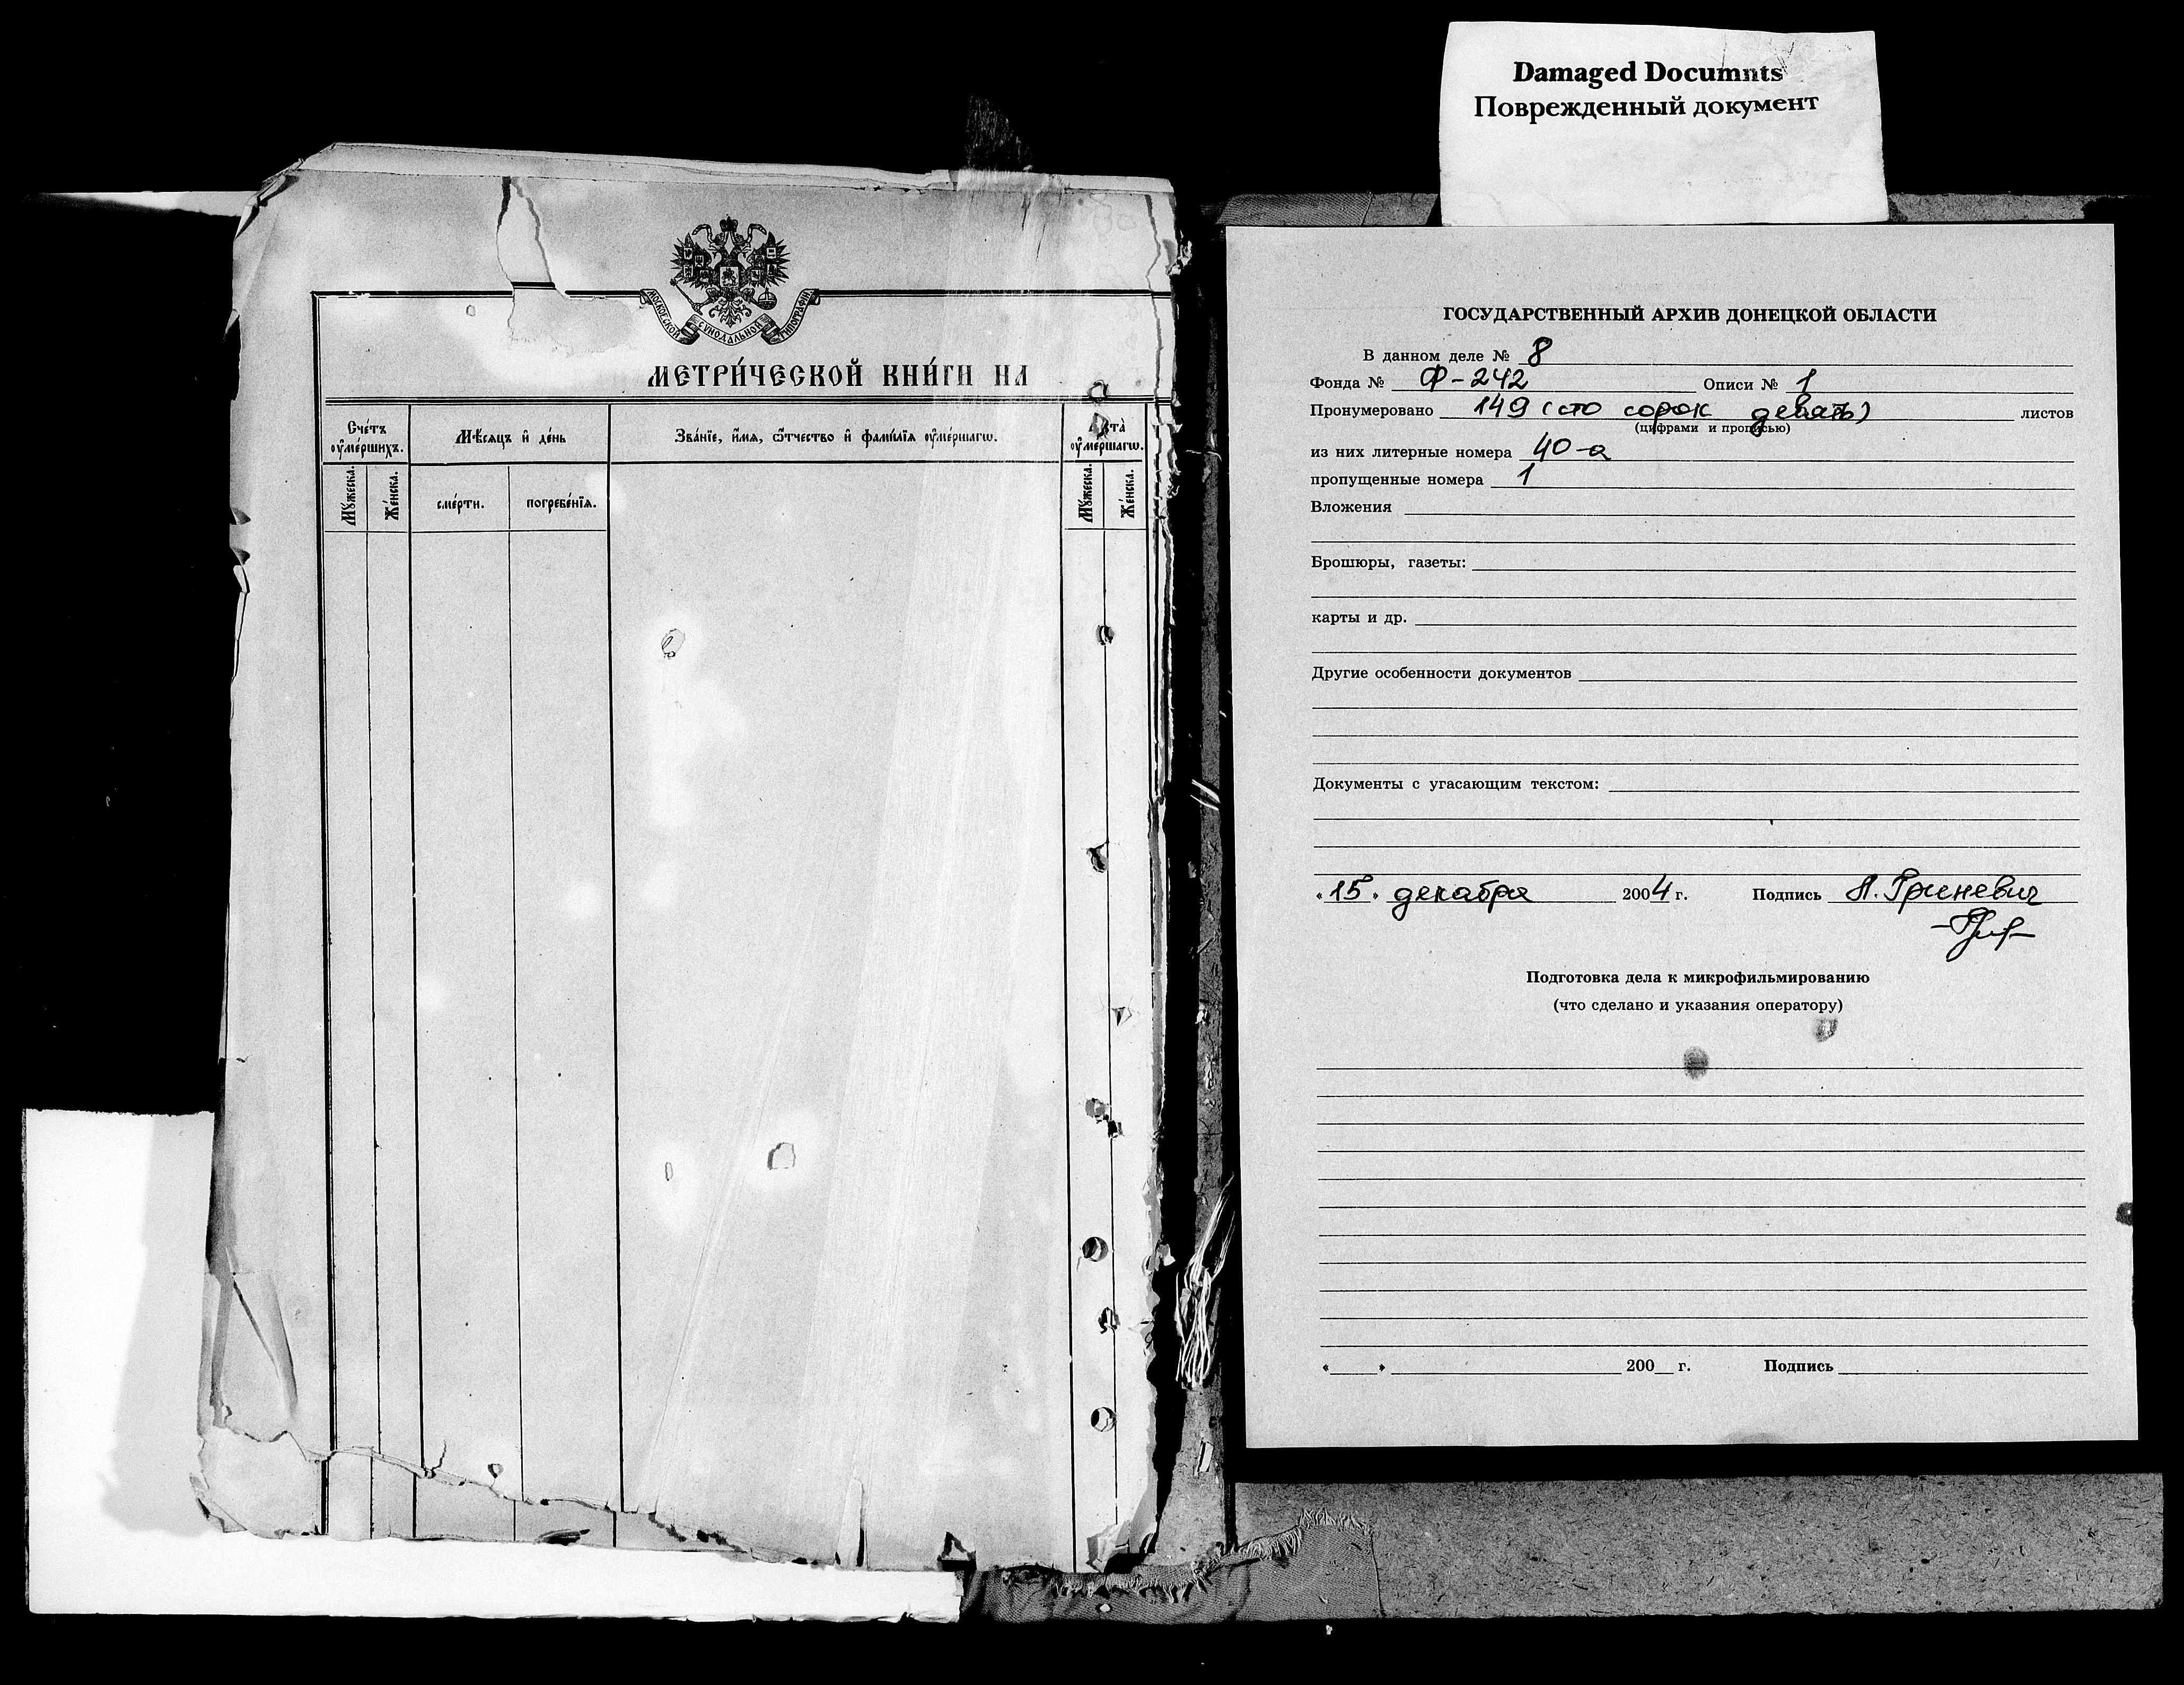 Damaged Documnts
Поврежденный документ
МОСКОВСКОЙ СУНОДАЛЬНОЙ ТИПОГРАФІИ
МЕТРИ́ЧЕСКОЙ КНИ́ГИ НА
Сче́тъ оумершихъ.
Мѣсяцъ и де́нь
Зва́нїе, и́мя, ѿтчество и фами́лїя оумершагѡ.
оумершагѡ.
Мꙋжеска.
Же́нска.
сме́рти.
погребе́нїя.
Мꙋжеска.
Же́нска.
ГОСУДАРСТВЕННЫЙ АРХИВ ДОНЕЦКОЙ ОБЛАСТИ
В данном деле № 8
Фонда № Ф-242 Описи № 1
Пронумеровано 149 (сто сорок девять) листов
(цифрами и прописью)
из них литерные номера 40-а
пропущенные номера 1
Вложения
Брошюры, газеты:
карты и др.
Другие особенности документов
Документы с угасающим текстом:
«15» декабря 2004 г. Подпись Л. Гриневич
Подготовка дела к микрофильмированию
(что сделано и указания оператору)
« » 200 г. Подпись